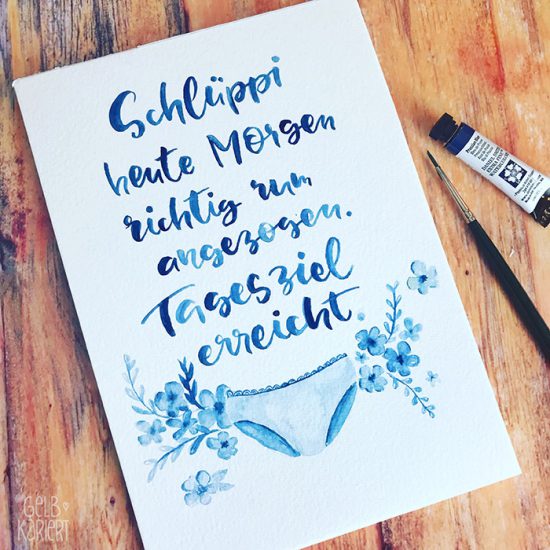 Schlüppi
heute Morgen
richtig rum
angezogen.
Tagesziel
erreicht
GELB
KARIERT